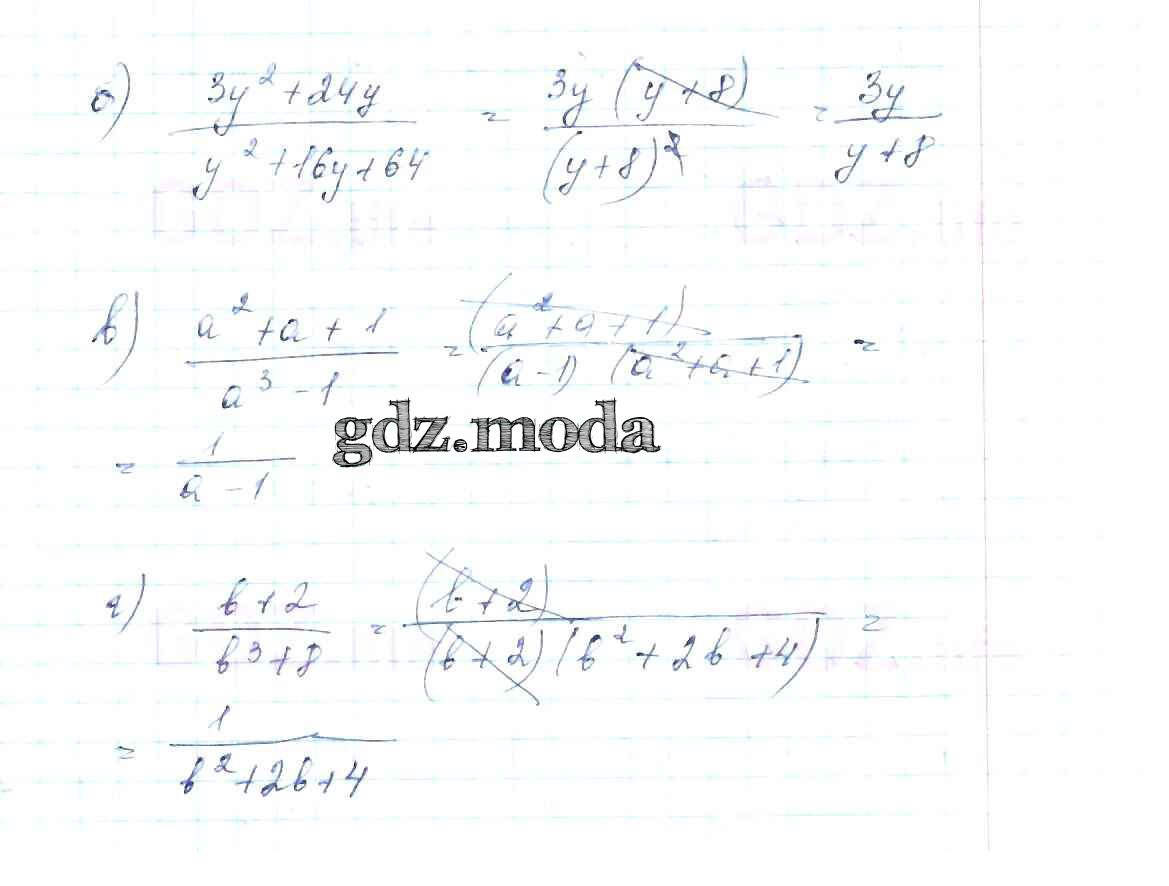 б) (3y² + 24y)/(y² + 16y + 64) = (3y (y + 8))/((y + 8)²) = 3y/(y + 8)
в) (a² + a + 1)/(a³ - 1) = ((a² + a + 1))/((a - 1) (a² + a + 1)) =
gdz.moda
= 1/(a - 1)
г) (b + 2)/(b³ + 8) = ((b + 2))/((b + 2) (b² + 2b + 4)) =
= 1/(b² + 2b + 4)